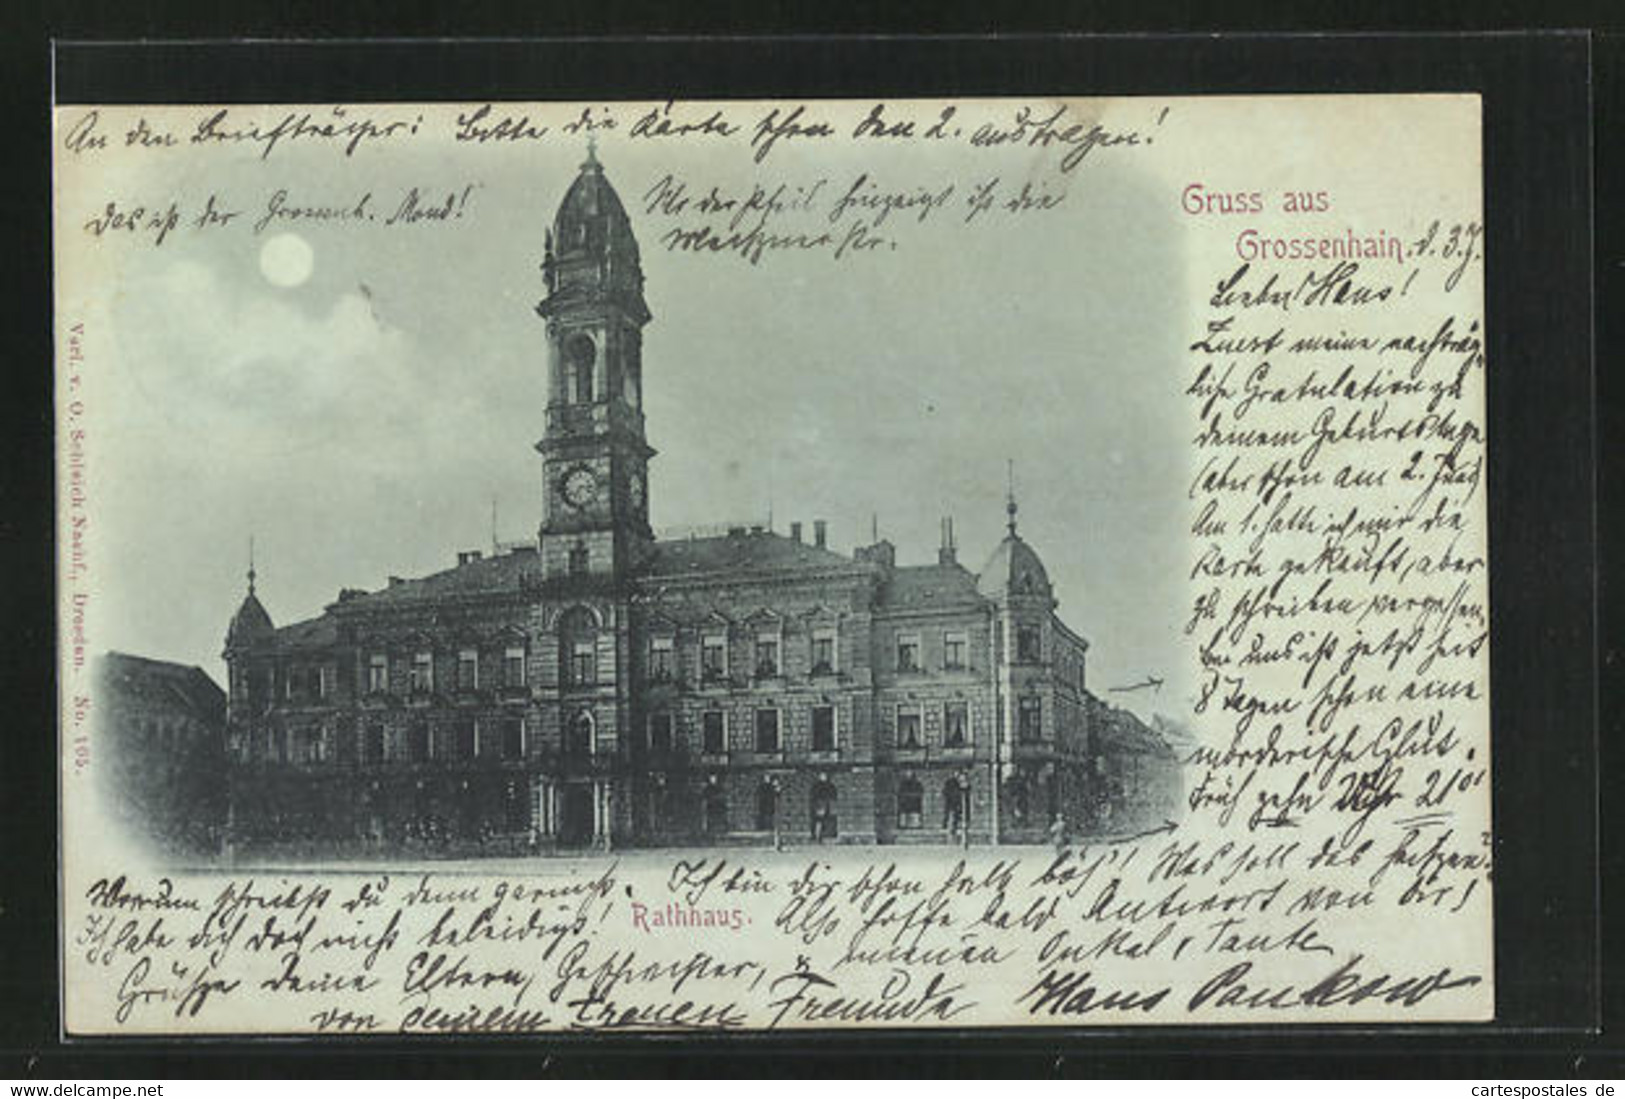 An den Briefträger: Bitte die Karte schon den 2. austragen!
Das ist der Grossenh. Mond!
Wo der Pfeil hinzeigt ist die
Meissner Str.
Gruss aus
Grossenhain. d. 3. J.
Lieber Hans!
Zuerst meine nachträg-
liche Gratulation zu
deinem Geburtstage
(aber schon am 2. Juni)
Am 1. hatte ich mir die
Karte gekauft, aber
zu schreiben vergessen.
Bei uns ist jetzt seit
8 Tagen schon eine
mörderische Glut.
Früh zehn Uhr 21°!
Warum schreibst du denn garnicht. Ich bin dir schon halb bös! Was soll das heissen?
Ich habe dich doch nicht beleidigt! Also hoffe bald Antwort von dir!
Rathhaus.
Grüsse deine Eltern, Geschwister, meinen Onkel, Tante
von deinem treuen Freunde Hans Pankow
Verl. v. O. Schleich Nachf., Dresden. No. 165.
www.delcampe.net
cartespostales de